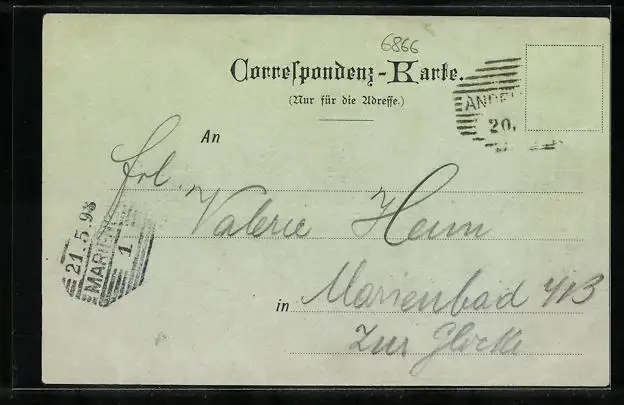 6866
Correspondenz-Karte.
(Nur für die Adresse.)
20.
An
Frl.
Valerie Heim
21.5.98
MARIENB
1
in Marienbad 413
Zur Glocke